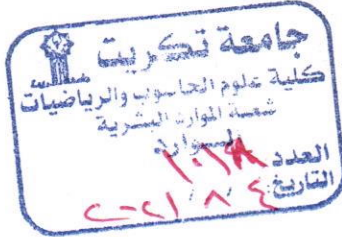 جامعة تكريت
كلية علوم الحاسوب والرياضيات
شعبة الموارد البشرية
الواردة
العدد
التاريخ: ٤ / ٨ / ٢٠٢١